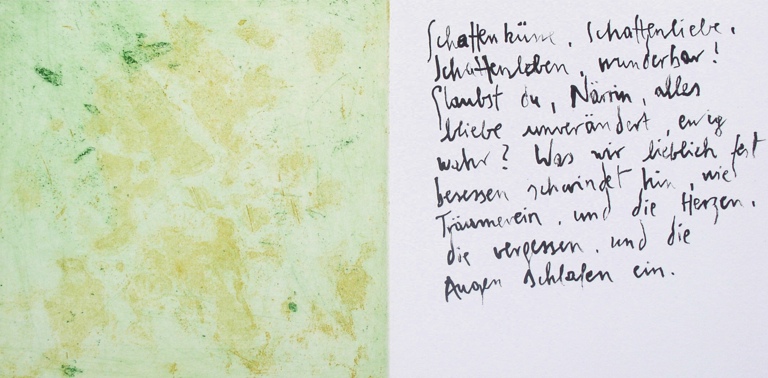 Schattenküsse, Schattenliebe,
Schattenleben, wunderbar!
Glaubst du, Närrin, alles
bliebe unverändert, ewig
wahr? Was wir lieblich fest
besessen schwindet hin, wie
Träumerein, und die Herzen,
die vergessen, und die
Augen schlafen ein.